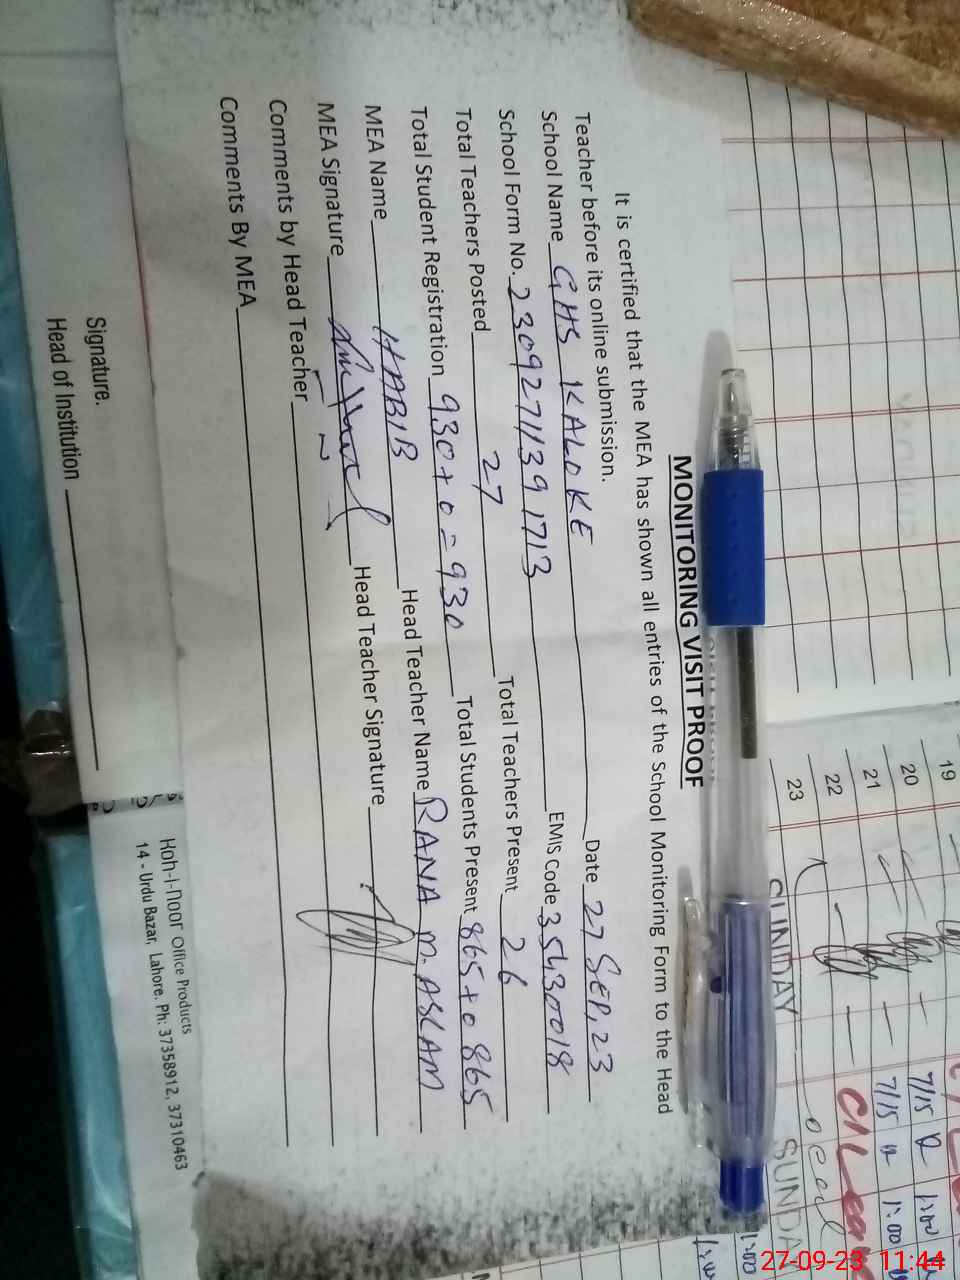 MONITORING VISIT PROOF
It is certified that the MEA has shown all entries of the School Monitoring Form to the Head
Teacher before its online submission.
School Name GHS KALOKE Date 27 SEP, 23
School Form No. 2309271139 1713 EMIS Code 35430018
Total Teachers Posted 27 Total Teachers Present 26
Total Student Registration 930+0=930 Total Students Present 865+0 865
MEA Name HABIB Head Teacher Name RANA M. ASLAM
MEA Signature Head Teacher Signature
Comments by Head Teacher
Comments By MEA
Signature.
Head of Institution
Hoh-i-noor Office Products
14 - Urdu Bazar, Lahore. Ph: 37358912, 37310463
19
20 7/15 1:00
21 7/15 1:00
22
23 SUNDAY SUNDAY
27-09-23 11:44